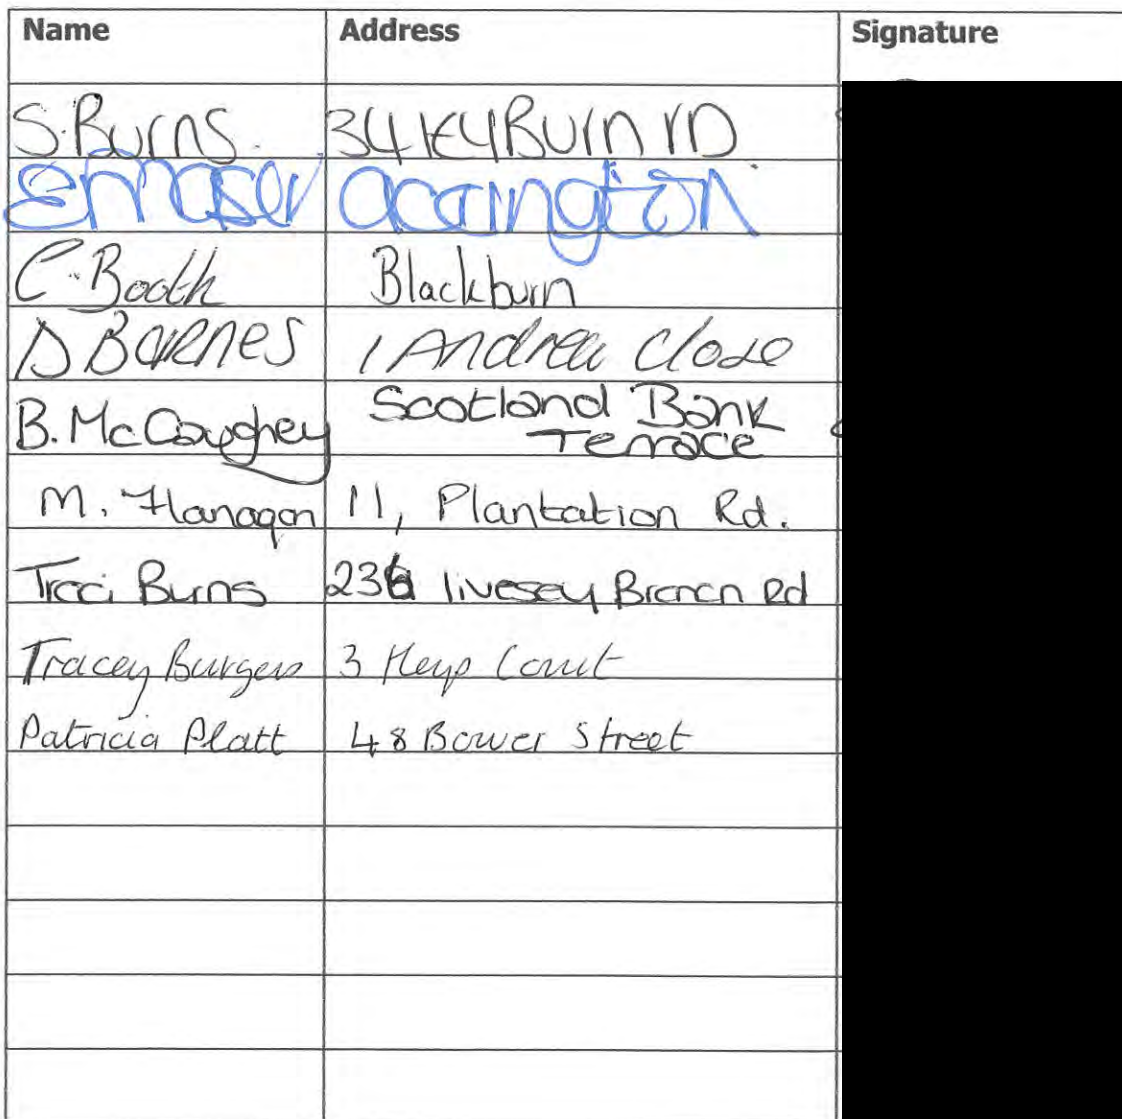 Name Address Signature
S. Burns. 34 RD.
accrington
C. Booth Blackburn
D BARNES 1 Andrea Close
B. McCaughey Scotland Bank
Terrace
M. Flanagan 11, Plantation Rd.
Traci Burns 236 livesey Branch Rd
Tracey Burgess 3 Heys Court
Patricia Platt 48 Bower Street